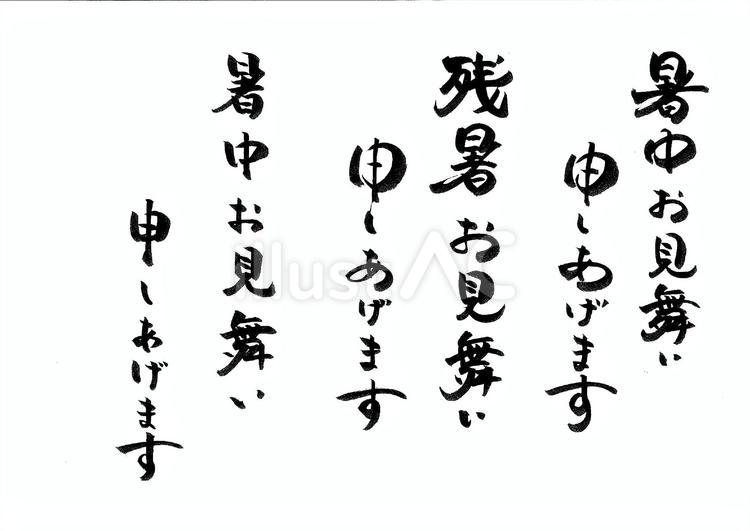 暑中お見舞い
申しあげます
残暑お見舞い
申しあげます
暑中お見舞い
申しあげます
illustAC